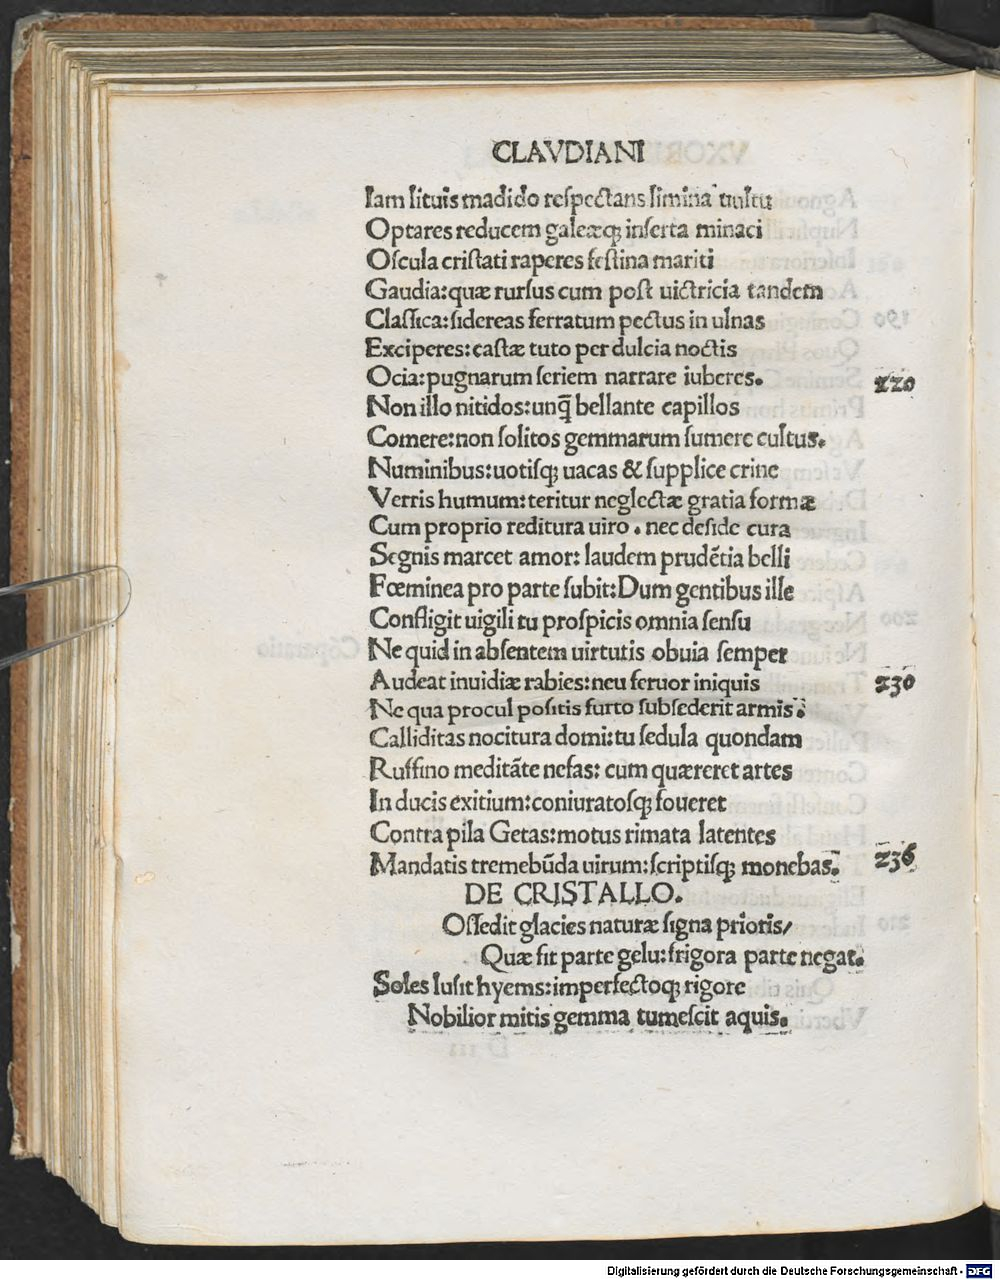 CLAVDIANI
Iam lituis madido respectans limina uultu
Optares reducem galeæq; inserta minaci
Oscula cristati raperes festina mariti
Gaudia: quæ rursus cum post uictricia tandem
Classica: sidereas ferratum pectus in ulnas
Exciperes: castæ tuto per dulcia noctis
Ocia: pugnarum seriem narrare iuberes. 220
Non illo nitidos: unq̃ bellante capillos
Comere: non solitos gemmarum sumere cultus.
Numinibus: uotisq; uacas & supplice crine
Verris humum: teritur neglectæ gratia formæ
Cum proprio reditura uiro. nec deside cura
Segnis marcet amor: laudem prudẽtia belli
Fœminea pro parte subit: Dum gentibus ille
Confligit uigili tu prospicis omnia sensu
Ne quid in absentem uirtutis obuia semper
Audeat inuidiæ rabies: neu feruor iniquis 230
Ne qua procul positis furto subsederit armis.
Calliditas nocitura domi: tu sedula quondam
Ruffino meditãte nefas: cum quæreret artes
In ducis exitium: coniuratosq; foueret
Contra pila Getas: motus rimata latentes
Mandatis tremebũda uirum: scriptisq; monebas. 236
DE CRISTALLO.
Ossedit glacies naturæ signa prioris/
Quæ fit parte gelu: frigora parte negat.
Soles lusit hyems: imperfectoq; rigore
Nobilior mitis gemma tumescit aquis.
Digitalisierung gefördert durch die Deutsche Forschungsgemeinschaft - DFG